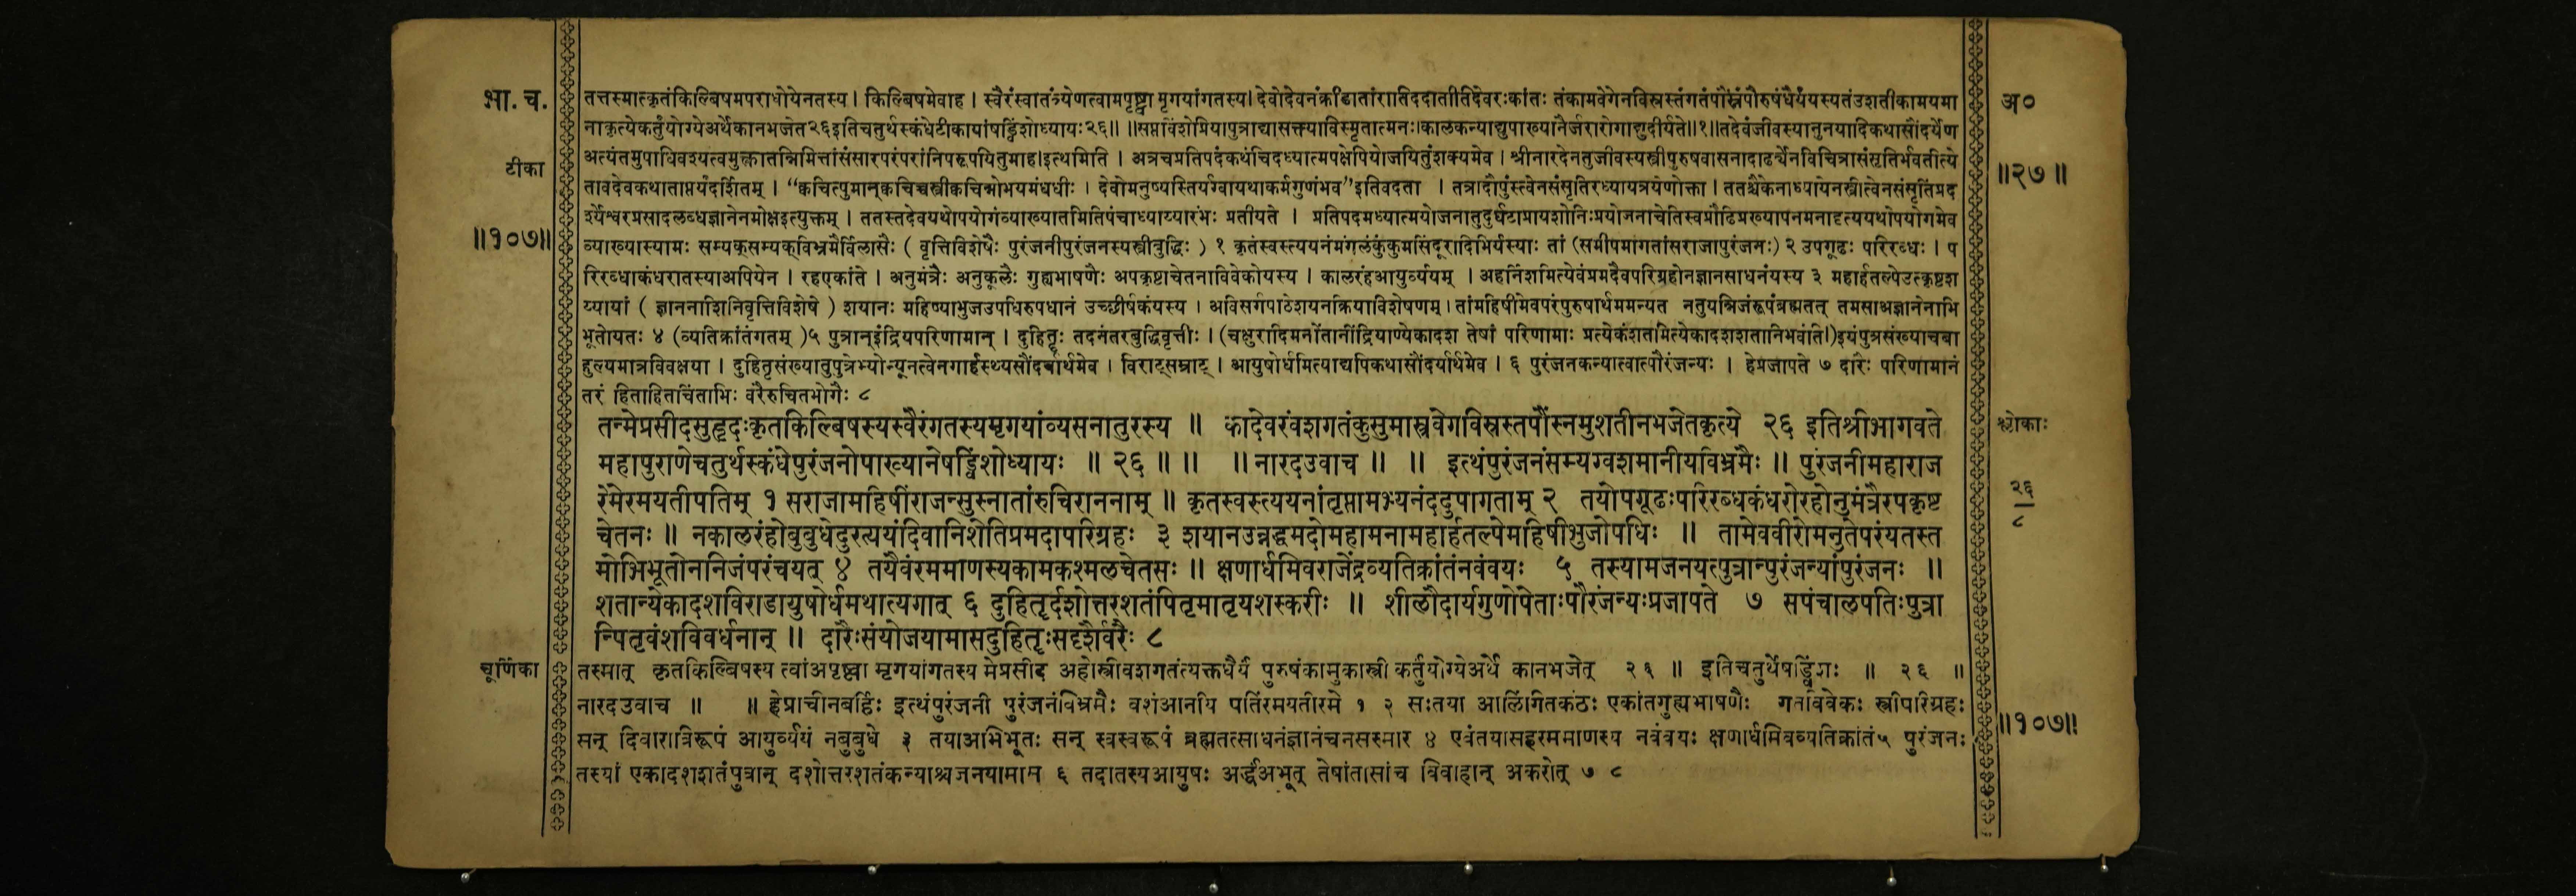 भा. च.
टीका
॥१०७॥
तत्तस्मात्कृतंकिल्बिषमपराधोयेनतस्य। किल्बिषमेवाह। स्वैरंस्वातंत्र्येणत्वामपृष्ट्वा मृगयांगतस्य। देवोदेवनंक्रीडातांरातिददातीतिदेवरःकांतः तंकामवेगेनविस्रस्तंगतंपौंस्नंपौरुषंधैर्यंयस्यतंउशतीकामयमा
नाकृत्येकर्तुंयोग्येअर्थेकानभजेत२६इतिचतुर्थस्कंधेटीकायांषड्विंशोध्यायः२६॥ ॥सप्तविंशेप्रियापुत्राद्यासक्त्याविस्मृतात्मनः।कालकन्याद्युपाख्यानैर्जरारोगाद्युदीर्यते॥१॥तदेवंजीवस्यानुनयादिकथासौंदर्येण
अत्यंतमुपाधिवश्यत्वमुक्त्वातन्निमित्तांसंसारपरंपरांनिपरूपयितुमाह।इत्थमिति । अत्रचप्रतिपदंकथंचिदध्यात्मपक्षेपियोजयितुंशक्यमेव । श्रीनारदेनतुजीवस्यस्त्रीपुरुषवासनादाढर्येनविचित्रासंसृतिर्भवतीत्ये
तावदेवकथातात्पर्यंदर्शितम् । “क्वचित्पुमान्क्वचिच्चस्त्रीक्वचिन्नोभयमंधधीः । देवोमनुष्यस्तिर्यग्वायथाकर्मगुणंभव”इतिवदता । तत्रादौपुंस्त्वेनसंसृतिरध्यायत्रयेणोक्ता । ततश्चैकेनाध्यायेनस्त्रीत्वेनसंसृतिंप्रद
र्श्येश्वरप्रसादलब्धज्ञानेनमोक्षइत्युक्तम् । ततस्तदेवयथोपयोगंव्याख्यातमितिपंचाध्याय्यारंभः प्रतीयते । प्रतिपदमध्यात्मयोजनातुदुर्घटाप्रायशोनिःप्रयोजनाचेतिस्वप्रौढिप्रख्यापनमनादृत्ययथोपयोगमेव
व्याख्यास्यामः सम्यक्सम्यक्विभ्रमैर्विलासैः ( वृत्तिविशेषैः पुरंजनीपुरंजनस्यस्त्रीबुद्धिः ) १ कृतंस्वस्त्ययनंमंगलंकुंकुमसिंदूरादिभिर्यस्याः तां (समीपमागतांसराजापुरंजनः) २ उपगूढः परिरब्धः । प
रिरब्धाकंधरातस्याअपियेन । रहएकांते । अनुमंत्रैः अनुकूलैः गुह्यभाषणैः अपकृष्टाचेतनाविवेकोयस्य । कालरंहआयुर्व्ययम् । अहर्निशमित्येवंप्रमदैवपरिग्रहोनज्ञानसाधनंयस्य ३ महार्हतल्पेउत्कृष्टश
य्यायां ( ज्ञाननाशिनिवृत्तिविशेषे ) शयानः महिष्याभुजउपधिरुपधानं उच्छीर्षकंयस्य । अविसर्गपाठेशयनक्रियाविशेषणम्। तांमहिषीमेवपरंपुरुषार्थममन्यत नतुयन्निजंरूपंब्रह्मतत् तमसाअज्ञानेनाभि
भूतोयतः ४ (व्यतिक्रांतंगतम् )५ पुत्रान्इंद्रियपरिणामान् । दुहितॄः तदनंतरबुद्धिवृत्तीः । (चक्षुरादिमनोंतानींद्रियाण्येकादश तेषां परिणामाः प्रत्येकंशतमित्येकादशशतानिभवंति।)इयंपुत्रसंख्याचबा
हुल्यमात्रविवक्षया । दुहितृसंख्यातुपुत्रेभ्योन्यूनत्वेनगार्हस्थ्यसौंदर्यार्थमेव । विराट्सम्राट् । आयुषोर्धमित्याद्यपिकथासौंदर्यार्थमेव । ६ पुरंजनकन्यात्वात्पौरंजन्यः । हेप्रजापते ७ दारैः परिणामानं
तरं हिताहितचिंताभिः वरैरुचितभोगैः ८
तन्मेप्रसीदसुहृदःकृतकिल्बिषस्यस्वैरंगतस्यमृगयांव्यसनातुरस्य ॥ कादेवरंवशगतंकुसुमास्त्रवेगविस्रस्तपौंस्नमुशतीनभजेतकृत्ये २६ इतिश्रीभागवते
महापुराणेचतुर्थस्कंधेपुरंजनोपाख्यानेषड्विंशोध्यायः ॥ २६ ॥ ॥ ॥ नारदउवाच ॥ ॥ इत्थंपुरंजनंसम्यग्वशमानीयविभ्रमैः ॥ पुरंजनीमहाराज
रेमेरमयतीपतिम् १ सराजामहिषींराजन्सुस्नातांरुचिराननाम् ॥ कृतस्वस्त्ययनांतृप्तामभ्यनंददुपागताम् २ तयोपगूढःपरिरब्धकंधरोरहोनुमंत्रैरपकृष्ट
चेतनः ॥ नकालरंहोबुबुधेदुरत्ययंदिवानिशेतिप्रमदापरिग्रहः ३ शयानउन्नद्धमदोमहामनामहार्हतल्पेमहिषीभुजोपधिः ॥ तामेववीरोमनुतेपरंयतस्त
मोभिभूतोननिजंपरंचयत् ४ तयैवंरममाणस्यकामकश्मलचेतसः ॥ क्षणार्धमिवराजेंद्रव्यतिक्रांतंनवंवयः ५ तस्यामजनयत्पुत्रान्पुरंजन्यांपुरंजनः ॥
शतान्येकादशविराडायुषोर्धमथात्यगात् ६ दुहितॄर्दशोत्तरशतंपितृमातृयशस्करीः ॥ शीलौदार्यगुणोपेताःपौरंजन्यःप्रजापते ७ सपंचालपतिःपुत्रा
न्पितृवंशविवर्धनान् ॥ दारैःसंयोजयामासदुहितॄःसदृशैर्वरैः ८
चूर्णिका
तस्मात् कृतकिल्बिषस्य त्वांअपृष्ट्वा मृगयांगतस्य मेप्रसीद अहोस्त्रीवशगतंत्यक्तधैर्यं पुरुषंकामुकास्त्री कर्तुंयोग्येअर्थे कानभजेत् २६ ॥ इतिचतुर्थेषड्विंशः ॥ २६ ॥
नारदउवाच ॥ ॥ हेप्राचीनबर्हिः इत्थंपुरंजनी पुरंजनंविभ्रमैः वशंआनीय पतिंरमयतीरेमे १ २ सःतया आलिंगितकंठः एकांतगुह्यभाषणैः गतविवेकः स्त्रीपरिग्रहः
सन् दिवारात्रिरूपं आयुर्व्ययं नबुबुधे ३ तयाअभिभूतः सन् स्वस्वरूपं ब्रह्मतत्साधनंज्ञानंचनसस्मार ४ एवंतयासहरममाणस्य नवंवयः क्षणार्धमिवव्यतिक्रांतं५ पुरंजनः
तस्यां एकादशशतंपुत्रान् दशोत्तरशतंकन्याश्चजनयामास ६ तदातस्यआयुषः अर्द्धंअभूत् तेषांतासांच विवाहान् अकरोत् ७ ८
अ०
॥२७॥
श्लोकाः
२६
८
॥१०७॥